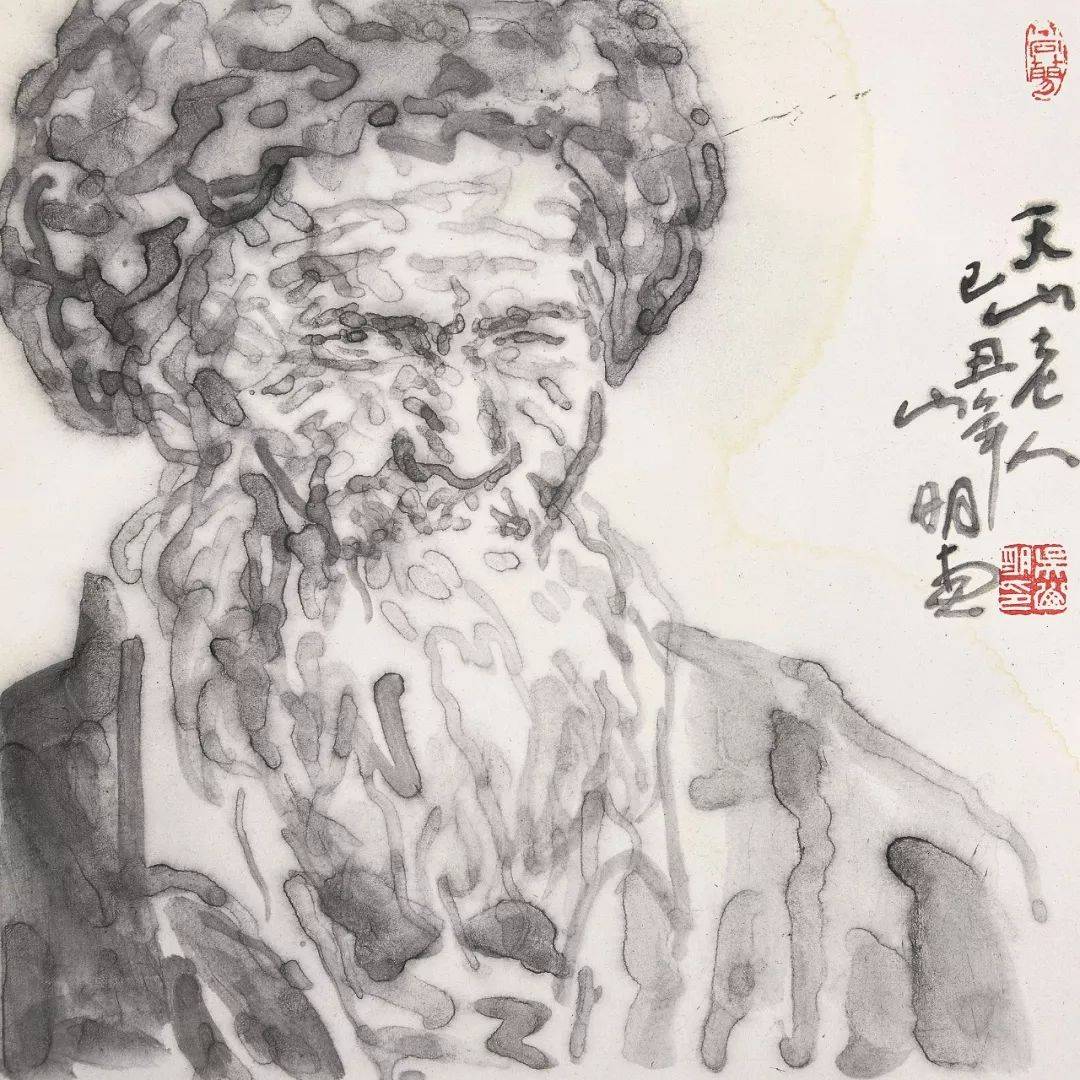 天山老人
己丑年
山明画
吳山
明印